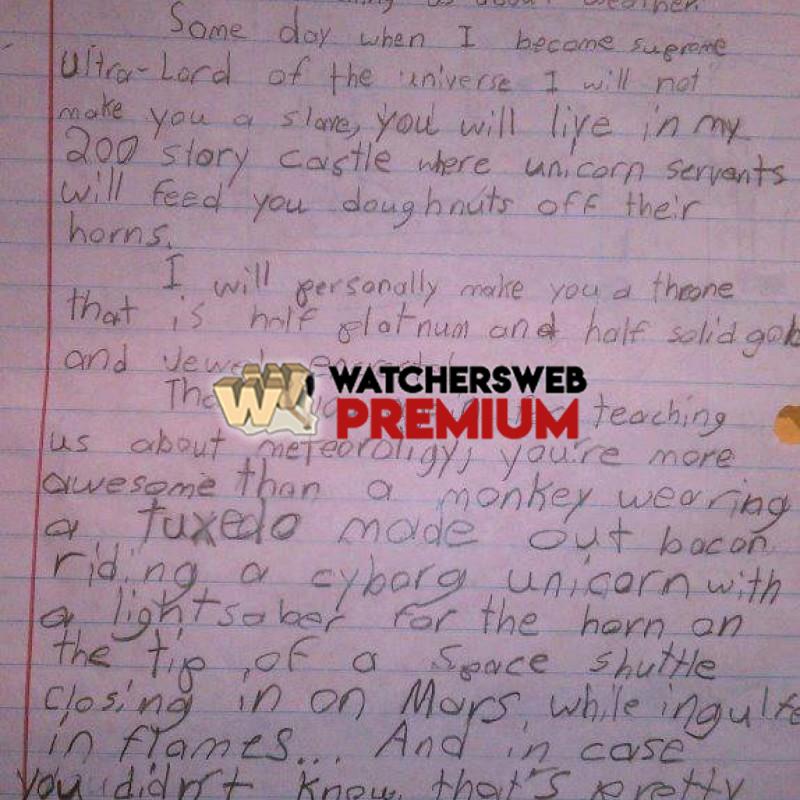 us about weather.
Some day when I become supreme
Ultra-Lord of the universe I will not
make you a slave, you will live in my
200 story castle where unicorn servants
will feed you doughnuts off their
horns.
I will personally make you a throne
that is half platnum and half solid gold
and jewel
WATCHERSWEB
PREMIUM
teaching
us about meteoroligy, you're more
awesome than a monkey wearing
a tuxedo made out bacon
riding a cyborg unicorn with
a lightsaber for the horn on
the tip of a space shuttle
closing in on Mars while ingulfe
in flames... And in case
you didn't know, that's pretty